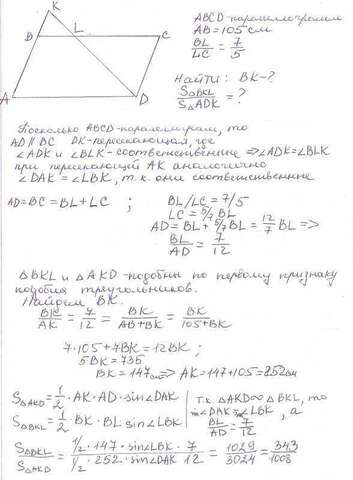 K
B
L
C
A
D
ABCD-параллелограмм
AB=105 см
BL/LC = 7/5
Найти: BK-?
S△BKL/S△ADK = ?
Поскольку ABCD-параллелограмм, то
AD∥BC DK-пересекающая, где
∠ADK и ∠BLK-соответственные ⇒∠ADK=∠BLK
при пересекающей AK аналогично
∠DAK = ∠LBK, т.к. они соответственные
AD=BC=BL+LC ; BL/LC = 7/5
LC = 5/7 BL
AD=BL+5/7 BL= 12/7 BL =>
BL/AD = 7/12
△BKL и △AKD-подобны по первому признаку
подобия треугольников.
Найдем BK.
BK/AK = 7/12 = BK/AB+BK = BK/105+BK
7·105+7BK=12BK ;
5BK=735
BK=147см => AK=147+105=252см
S△AKD = 1/2 · AK·AD·sin∠DAK
S△BKL = 1/2 BK·BL sin∠LBK
т.к. △AKD∞△BKL, то
∠DAK=∠LBK, а
BL/AD = 7/12
S△BKL/S△AKD = 1/2·147·sin∠LBK·7/1/2·252·sin∠DAK 12 = 1029/3024 = 343/1008